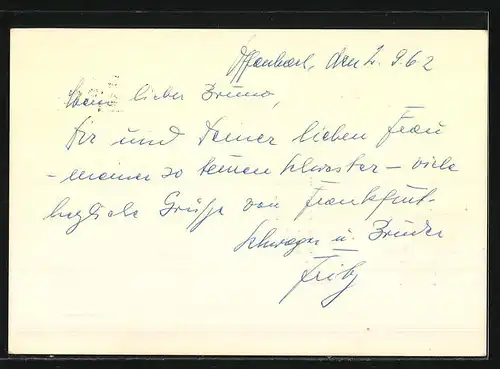 Offenbach, den 2. 9.62
Mein lieber Bruno,
Dir und Deiner lieben Frau
- meiner so teuren Schwester - viele
herzliche Grüße von Frankfurt.
Schwager u. Bruder
Fritz